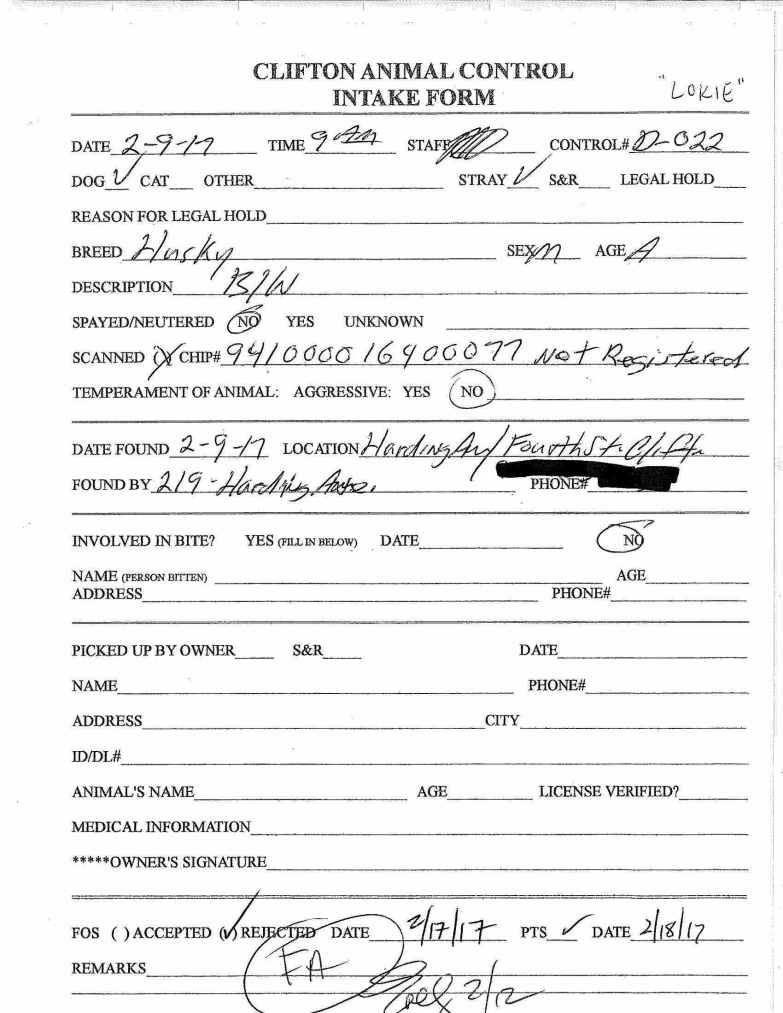 CLIFTON ANIMAL CONTROL
INTAKE FORM
"LOKIE"
DATE 2-9-17 TIME 9 AM STAFF CONTROL# D-022
DOG ✓ CAT OTHER STRAY ✓ S&R LEGAL HOLD
REASON FOR LEGAL HOLD
BREED Husky SEX M AGE A
DESCRIPTION B/W
SPAYED/NEUTERED NO YES UNKNOWN
SCANNED (X) CHIP# 941000016400077 Not Registered
TEMPERAMENT OF ANIMAL: AGGRESSIVE: YES NO
DATE FOUND 2-9-17 LOCATION Harding Av/ Fourth St.
FOUND BY 219-Harding PHONE#
INVOLVED IN BITE? YES (FILL IN BELOW) DATE NO
NAME (PERSON BITTEN) AGE
ADDRESS PHONE#
PICKED UP BY OWNER S&R DATE
NAME PHONE#
ADDRESS CITY
ID/DL#
ANIMAL'S NAME AGE LICENSE VERIFIED?
MEDICAL INFORMATION
*****OWNER'S SIGNATURE
FOS ( ) ACCEPTED (✓) REJECTED DATE 2/17/17 PTS ✓ DATE 2/18/17
REMARKS FA
2/12